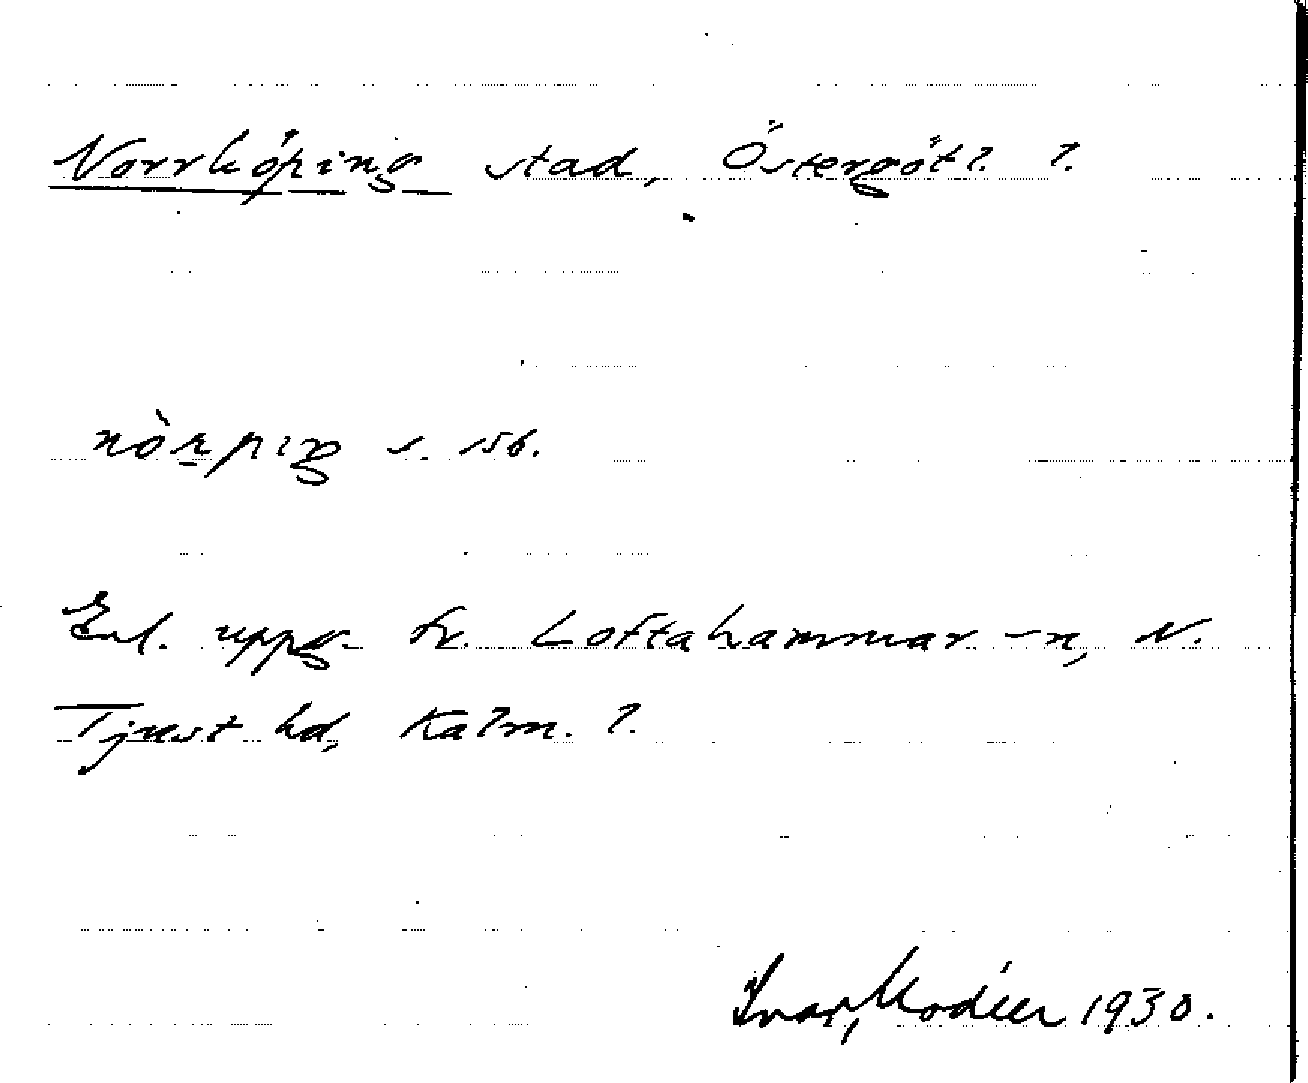 Norrköping stad, Östergötl. l.
nòrpiŋ s. 156.
Enl. uppg. fr. Loftahammar -n, N.
Tjust hd, Kalm. l.
Ivar Modéer 1930.